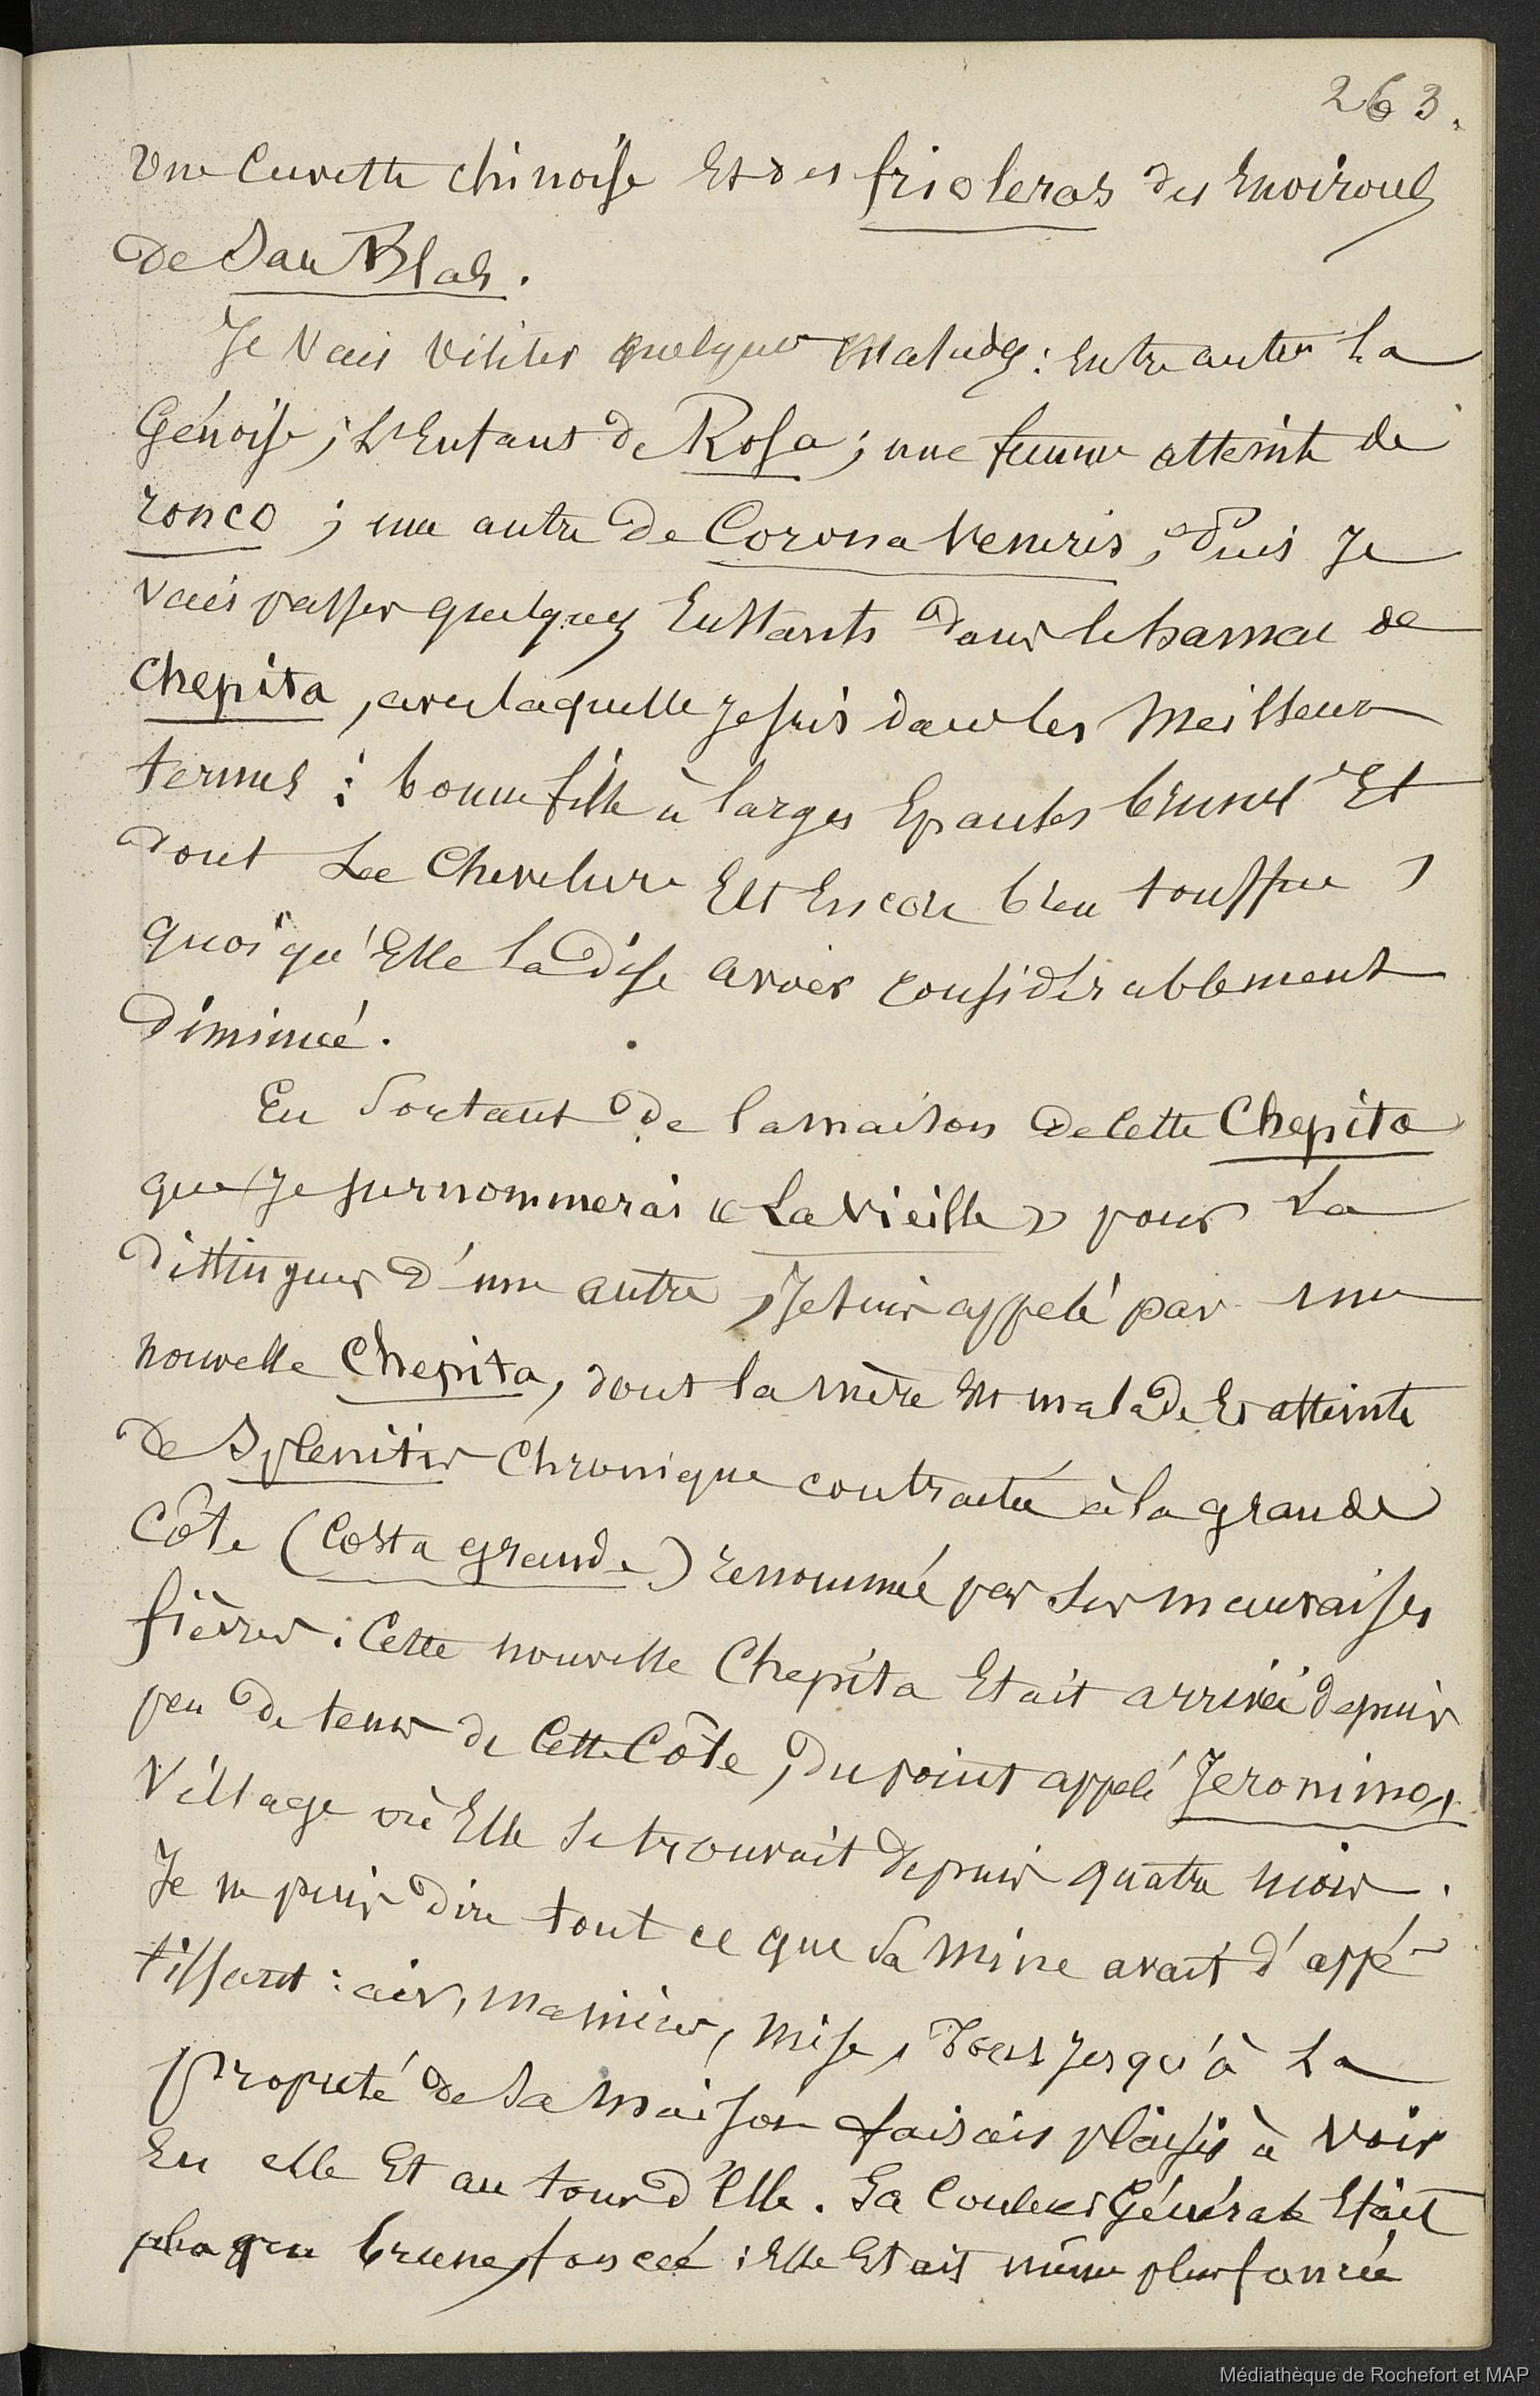 263.
Une Cuvette chinoise Et des frioleras des Environs
de San Blas.
Je Vais Visiter quelques Malades : Entre autres La
Génoise ; L'Enfant de Rosa ; une femme atteinte de
ronco ; une autre de Corona Veneris, Puis Je
Vais passer quelques Instants dans le hamac de
Chepita, avec laquelle Je suis dans les Meilleurs
termes : bonne fille à larges Epaules brunes Et
dont La Chevelure Est Encore bien touffue,
quoiqu'Elle la dise avoir considérablement
diminué.
En Sortant de la maison de Cette Chepita
que Je surnommerai « La Vieille » pour La
distinguer d'une autre, Je suis appelé par une
nouvelle Chepita, dont la mère Est malade Et atteinte
de Splenitis Chronique contractée à la grande
Côte (Costa grande) renommée par Ses mauvaises
fièvres. Cette nouvelle Chepita Etait arrivée depuis
peu de tems de Cette Côte, du point appelé Jeronimo,
Village où Elle Se trouvait depuis quatre mois.
Je ne puis dire tout ce que Sa Mine avait d'appé-
tissant : air, manières, Mise, tout Jusqu'à La
propreté de Sa Maison faisais plaisir à Voir
En elle Et autour d'Elle. Sa Couleur Générale Etait
plus que brune foncée : Elle Etait même plus foncée
Médiathèque de Rochefort et MAP